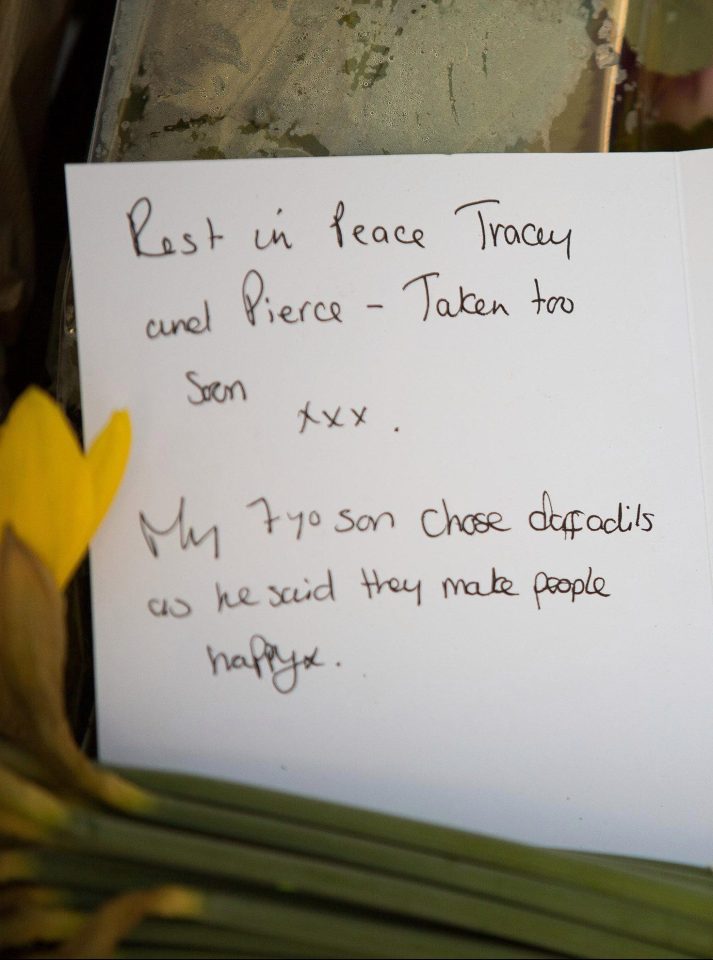 Rest in Peace Tracey
and Pierce - Taken too
soon
xxx .
My 7yo son chose daffodils
as he said they make people
happyx.